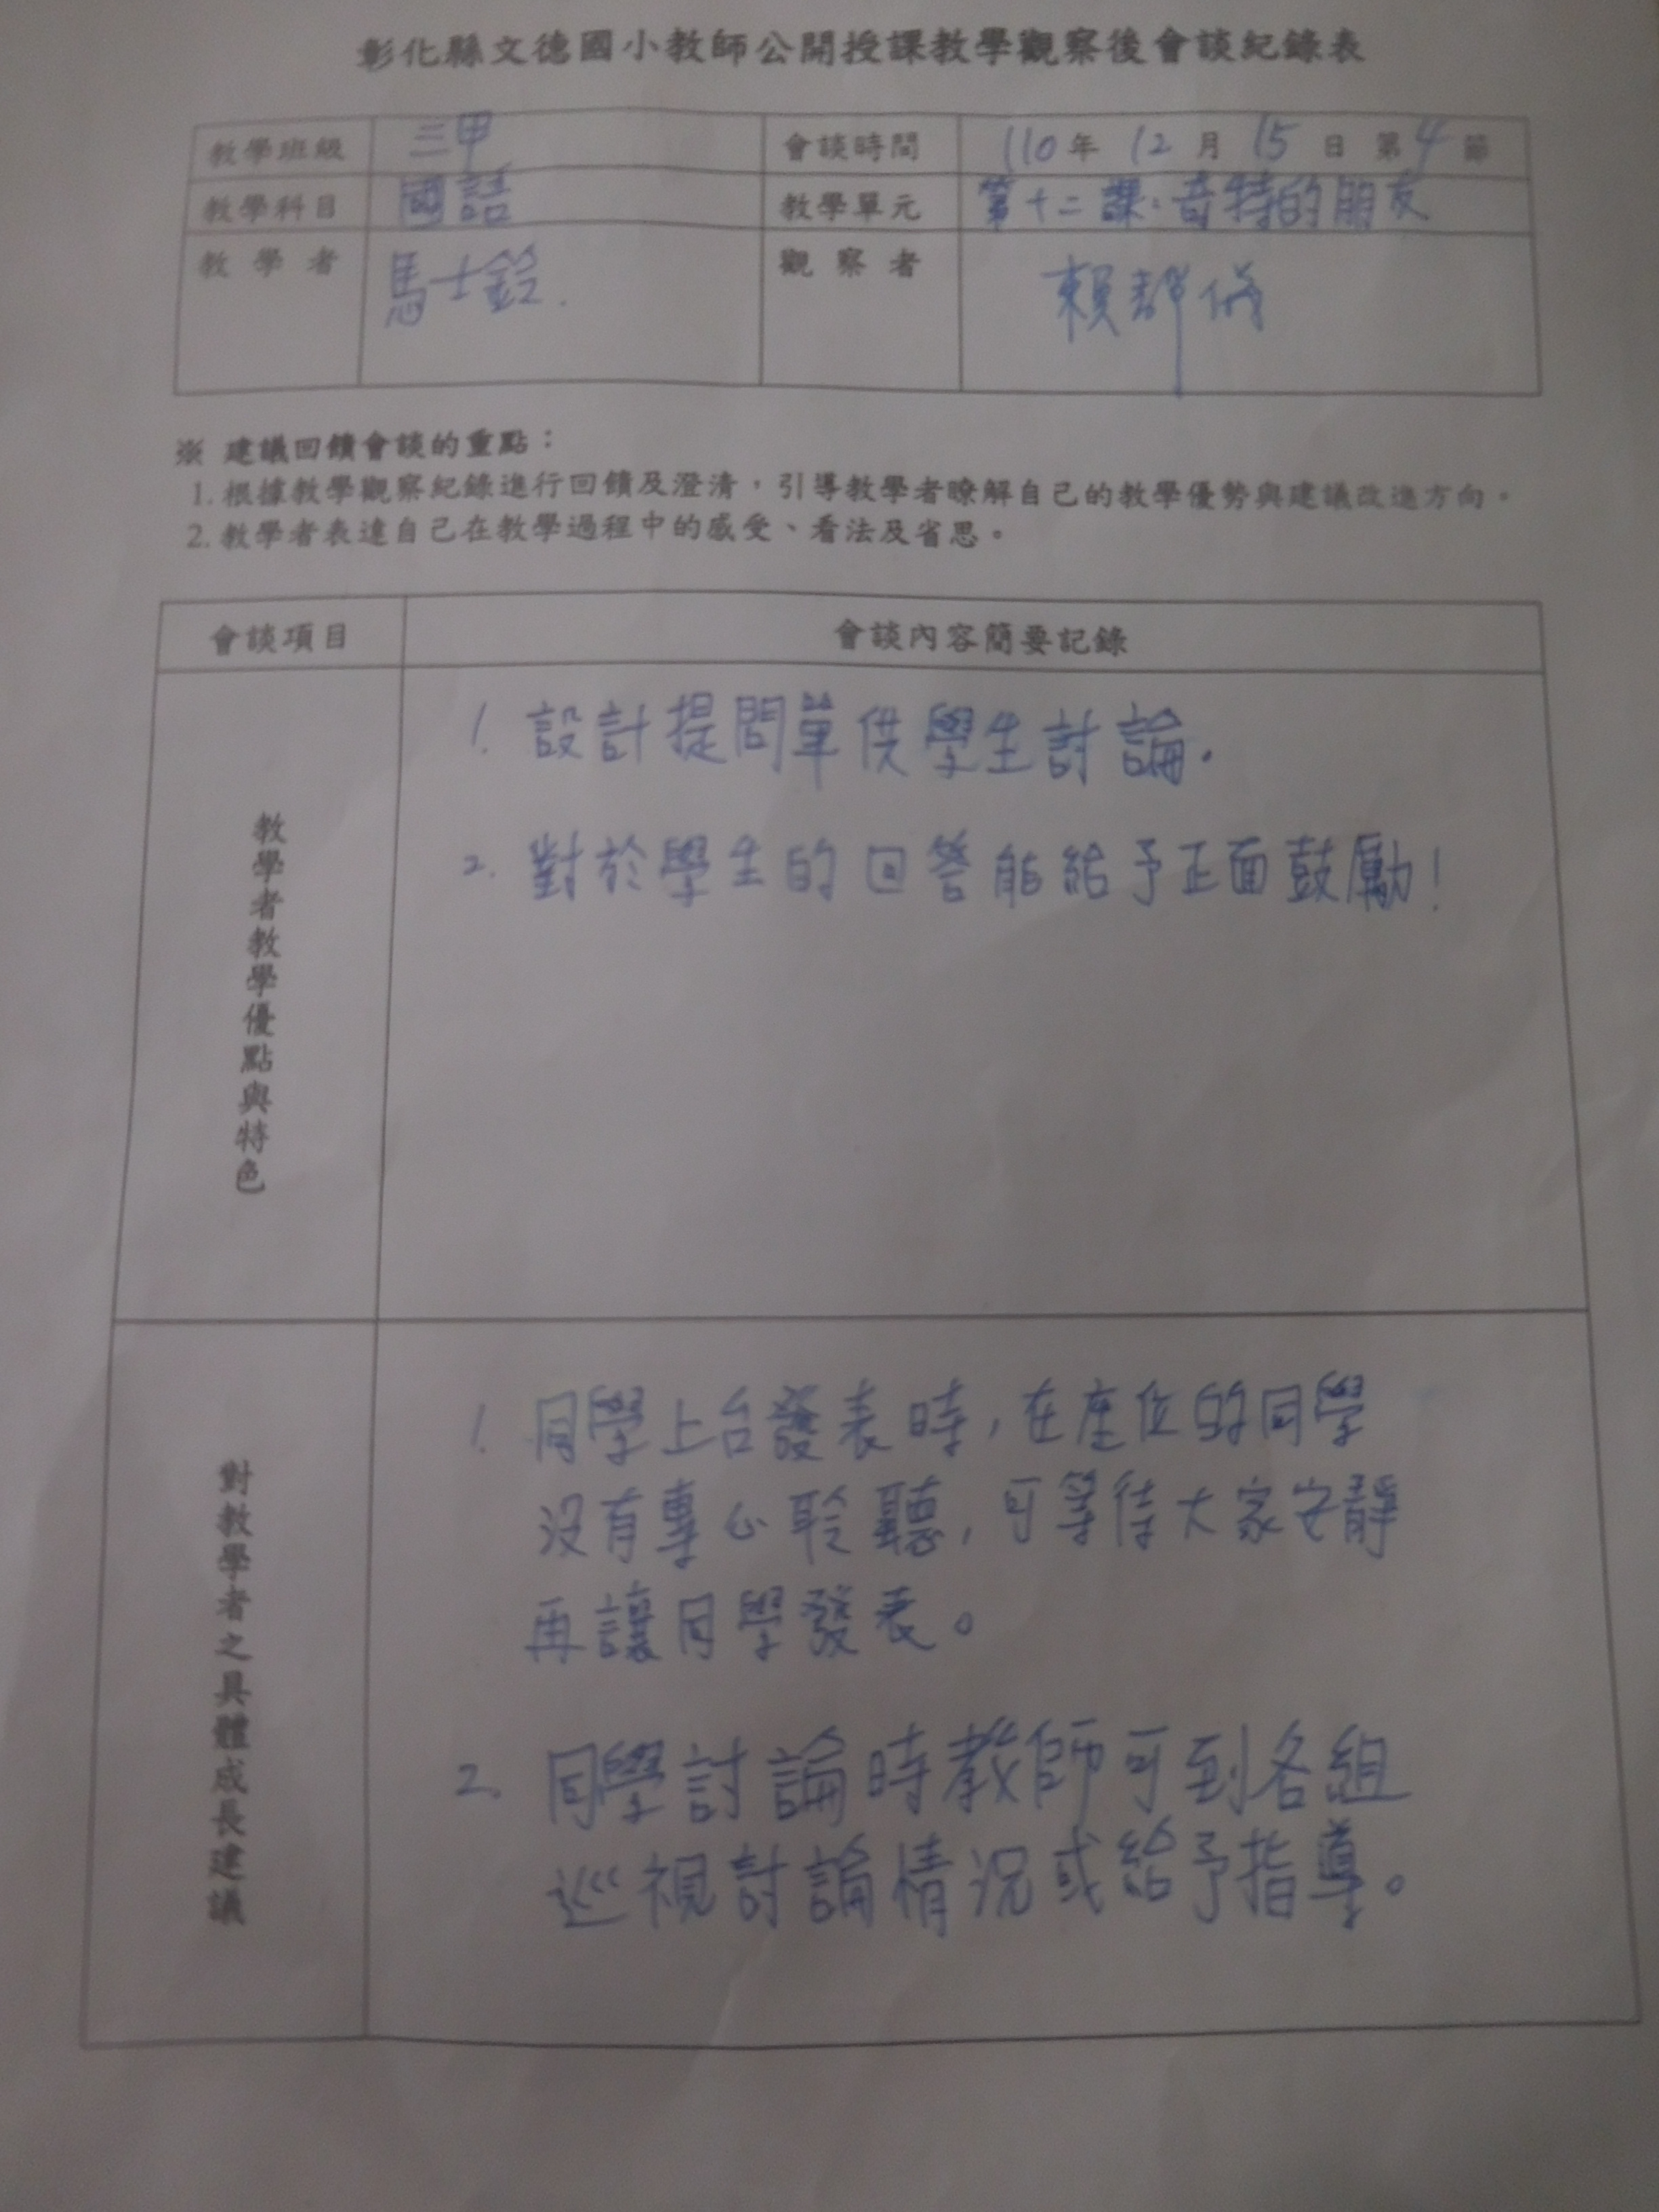 彰化縣文德國小教師公開授課教學觀察後會談紀錄表
教學班級 三甲 會談時間 110年 12月 15日 第4節
教學科目 國語 教學單元 第十二課:奇特的朋友
教學者 馬士鈴. 觀察者 賴靜儀
※ 建議回饋會談的重點：
1. 根據教學觀察紀錄進行回饋及澄清，引導教學者瞭解自己的教學優勢與建議改進方向。
2. 教學者表達自己在教學過程中的感受、看法及省思。
會談項目 會談內容簡要記錄
教學者教學優點與特色
1. 設計提問單供學生討論.
2. 對於學生的回答能給予正面鼓勵!
對教學者之具體成長建議
1. 同學上台發表時,在座位的同學
沒有專心聆聽,可等待大家安靜
再讓同學發表。
2. 同學討論時教師可到各組
巡視討論情況或給予指導。